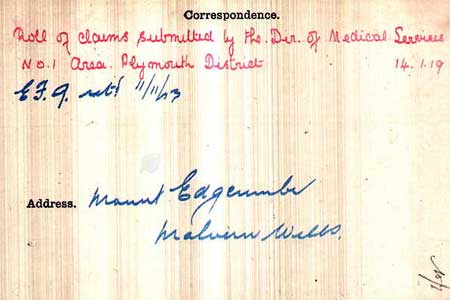 Correspondence.
Roll of claims submitted by the Dir. of Medical Services
No. 1 Area. Plymouth District 14.1.19
E.F.9. ret! 11/11/23
Address. Mount Edgcumbe
Malvern Wells.